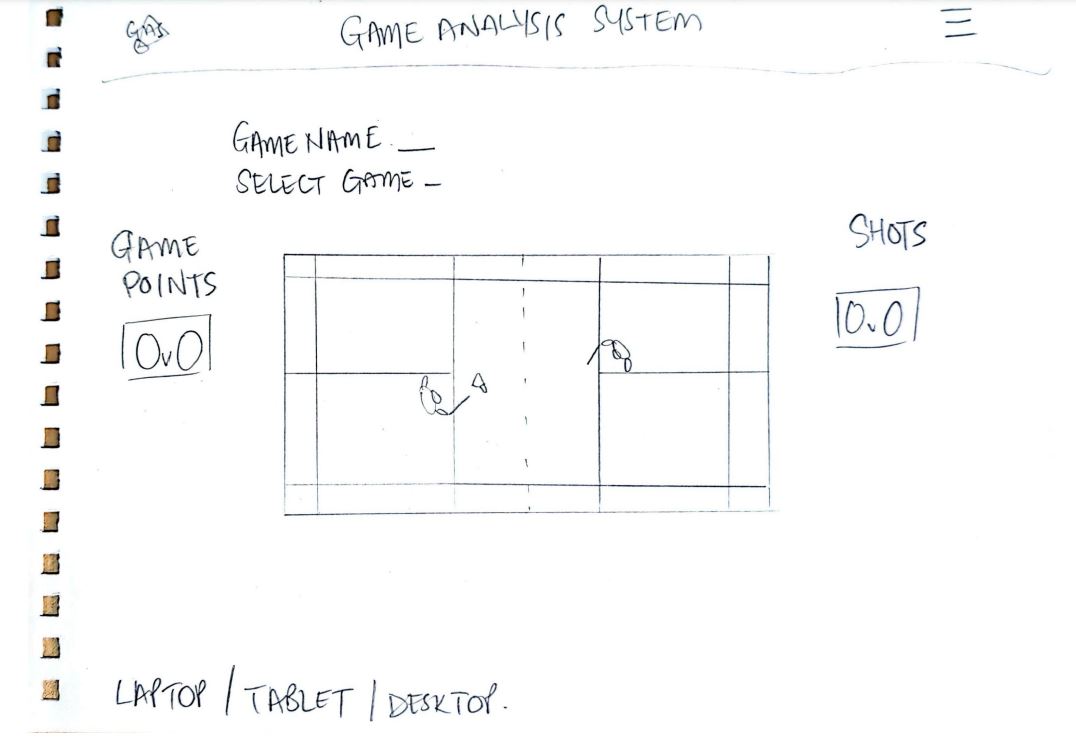 GAS
GAME ANALYSIS SYSTEM
GAME NAME __
SELECT GAME _
GAME
POINTS
0v0
SHOTS
0v0
LAPTOP / TABLET / DESKTOP.